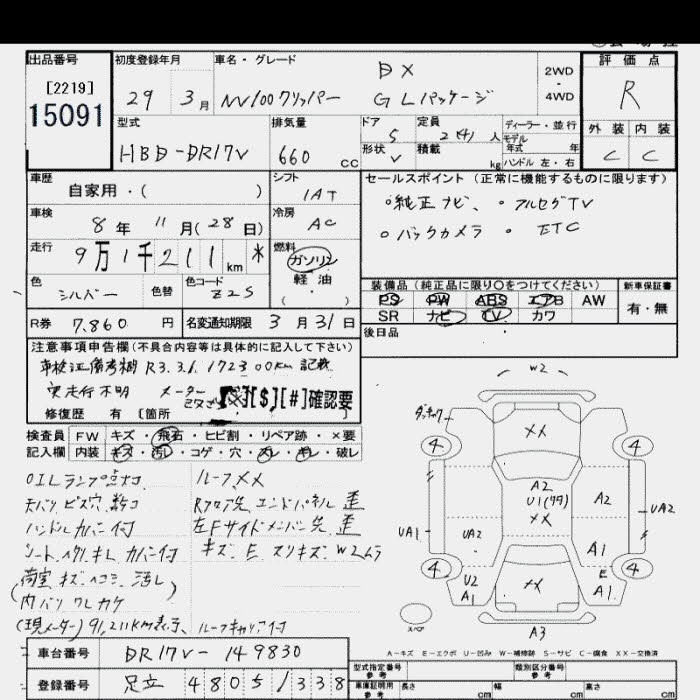 出品番号 初度登録年月 車名・グレード 評価点
[2219] DX 2WD・4WD
15091 29 3月 NV100クリッパー GLパッケージ R
型式 排気量 ドア 5 定員 2(4)人 ディーラー・並行 外装 内装
モデル年式 年
HBD-DR17V 660cc 形状 V 積載 kg ハンドル 左・右 C C
車歴 シフト セールスポイント(正常に機能するものに限ります)
自家用・( ) IAT ・純正ナビ、 ・フルセグTV
車検 8年 11月(28日) 冷房 AC ・バックカメラ ・ETC
走行 9万1千211km * 燃料 ガソリン
軽油
( )
色 シルバー 色替 色コード Z2S 装備品(純正品に限り○をつけてください) 新車保証書
PS PW ABS エアB AW 有・無
R券 7,860円 名変通知期限 3月31日 SR ナビ TV カワ
後日品
注意事項申告欄(不具合内容等は具体的に記入して下さい)
車検証備考欄 R3.3.1 172300km 記載
実走行不明 メーター [$][#]確認要
修復歴 有 [箇所
検査員 FW キズ・飛石・ヒビ割・リペア跡・×要
記入欄 内装 キズ・汚レ・コゲ・穴・スレ・キレ・破レ
OILランプ点ナコ ルーフメメ
天バリビス穴、数コ Rフロア先、エンドパネル歪
ハンドルカバー付 左Fサイドメンバー先、歪
シート、ヘタリキレカバー付 キズ、E、スリキズ、W2ムラ
(荷室キズヘコミ、汚レ)
内バリワレカケ
(現メーター)91,211km表示、ルーフキャリア付
W2
XX
4 4
A2
U1(多々)
XX
A2
UA2
UA1
UA2
A1
4 E 4
U2
A1 XX A1
スペア A3
A-キズ E-エクボ U-凹み W-補修跡 S-サビ C-腐食 XX-交換済
車台番号 DR17V-149830 型式指定番号 参考 類別区分番号 参考
登録番号 足立 4805/338 車庫証明用 参考 長さ cm 幅 cm 高さ cm